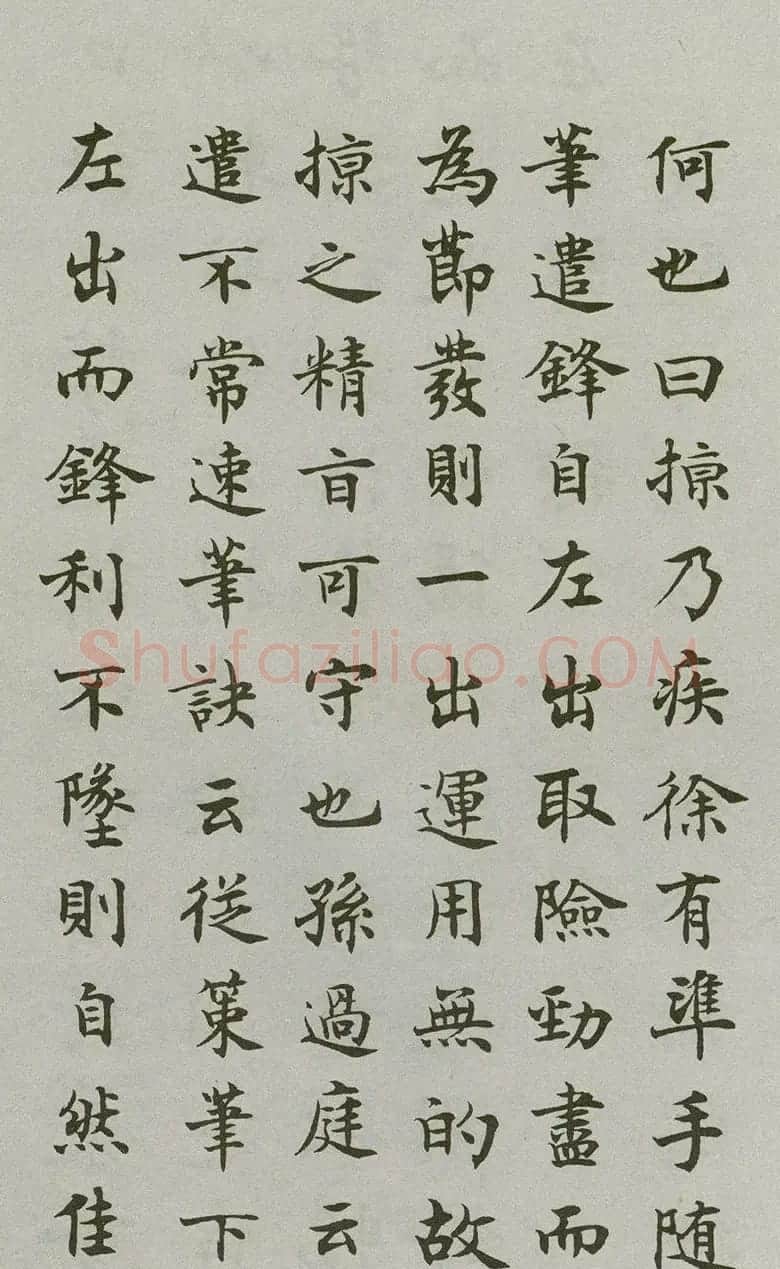 何也曰掠乃疾徐有準手随
筆遣鋒自左出取險勁盡而
為節發則一出運用無的故
掠之精旨可守也孫過庭云
遣不常速筆訣云從策筆下
左出而鋒利不墜則自然佳
Shufaziliao.COM